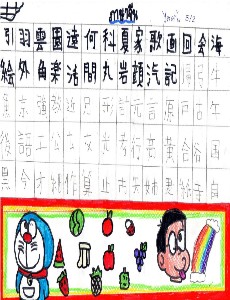 引羽雲園遠何科夏家歌画回会海
絵外角楽活間丸岩顔汽記帰弓牛
魚京強教近兄形計元言原戸古午
後語工公広交光考行高黄合谷国
黒今才細作算止市矢姉思紙寺自